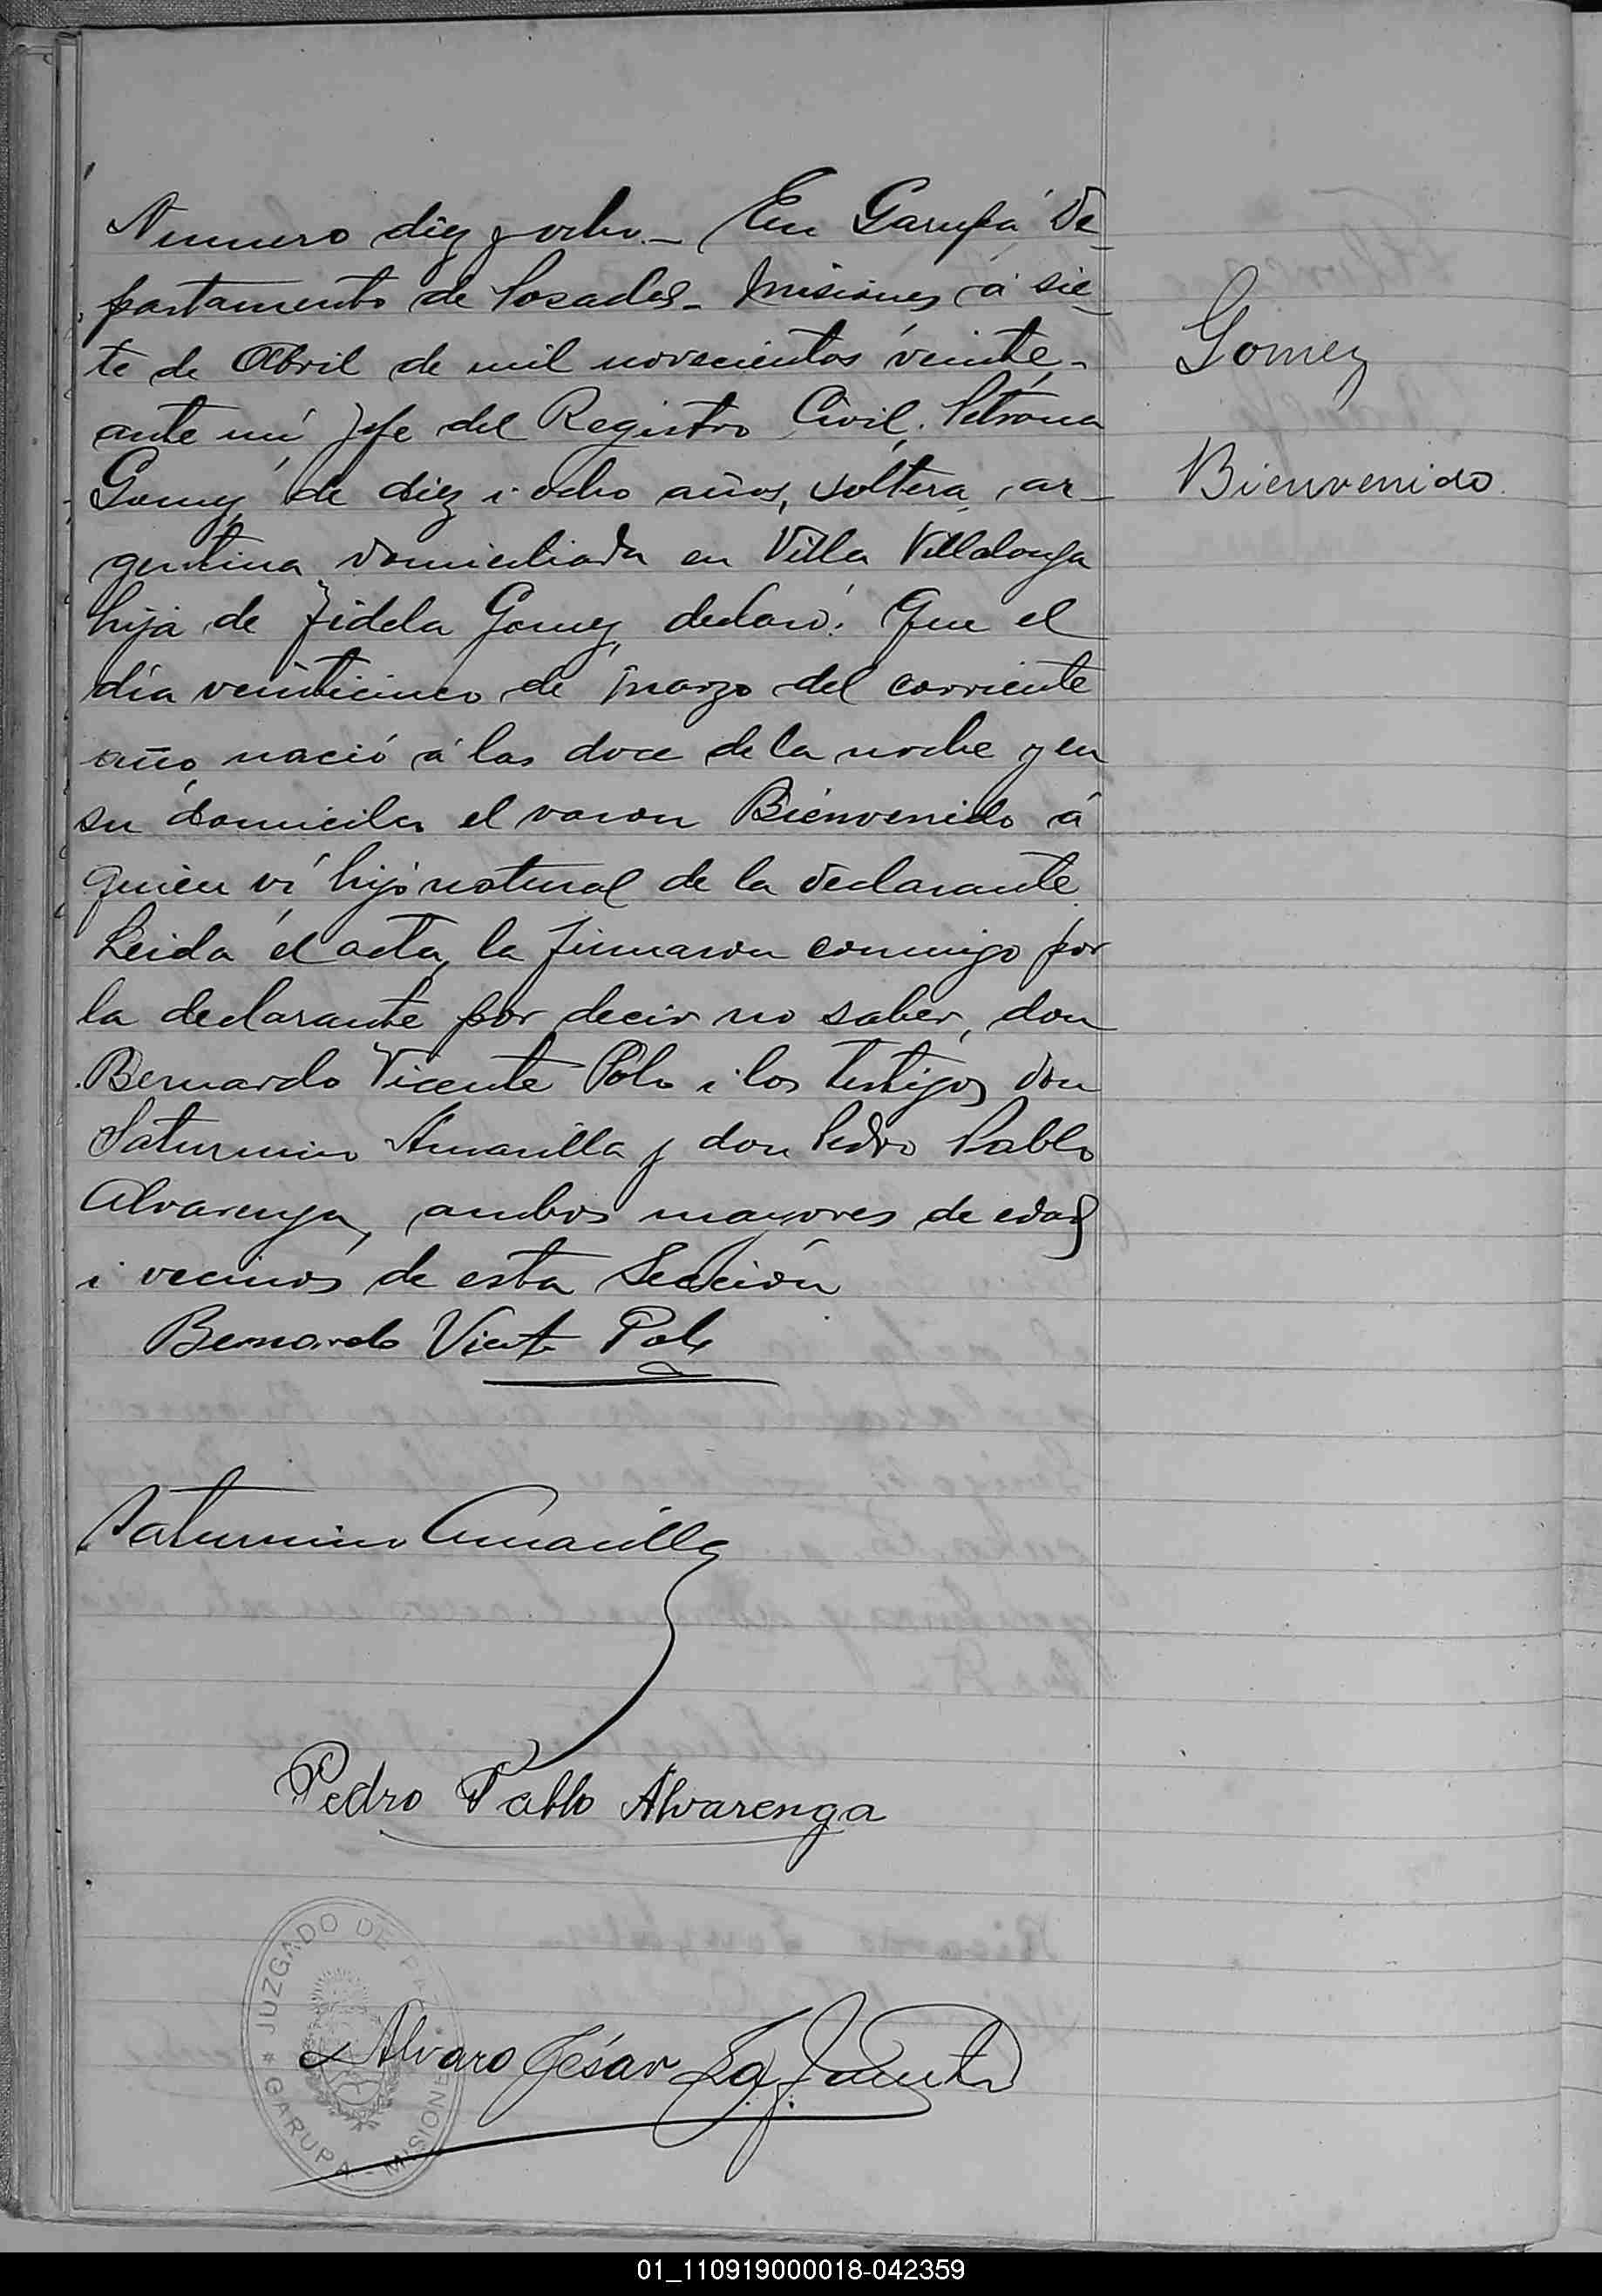 Numero diez y ocho.- En Garupá De-
partamento de Posadas- Misiones á sie-
te de Abril de mil novecientos veinte-
ante mi Jefe del Registro Civil, Petrona
Gomez, de diez i ocho años, soltera, ar-
gentina domiciliada en Villa Villalonga
hija de Fidela Gomez, declaró: Que el
día veinticinco de marzo del corriente
año, nació á las doce de la noche y en
su domicilio el varon Bienvenido á
quien ví hijo natural de la declarante.
Leida el acta, la firmaron conmigo por
la declarante por decir no saber, don
Bernardo Vicente Polo i los testigos don
Saturnino Amarilla y don Pedro Pablo
Alvarenga, ambos mayores de edad
i vecinos de esta Sección
Gomez
Bienvenido
Bernardo Vicente Polo
Saturnino Amarilla
Pedro Pablo Alvarenga
JUZGADO DE PAZ
GARUPA - MISIONES
Alvaro César
01_110919000018-042359